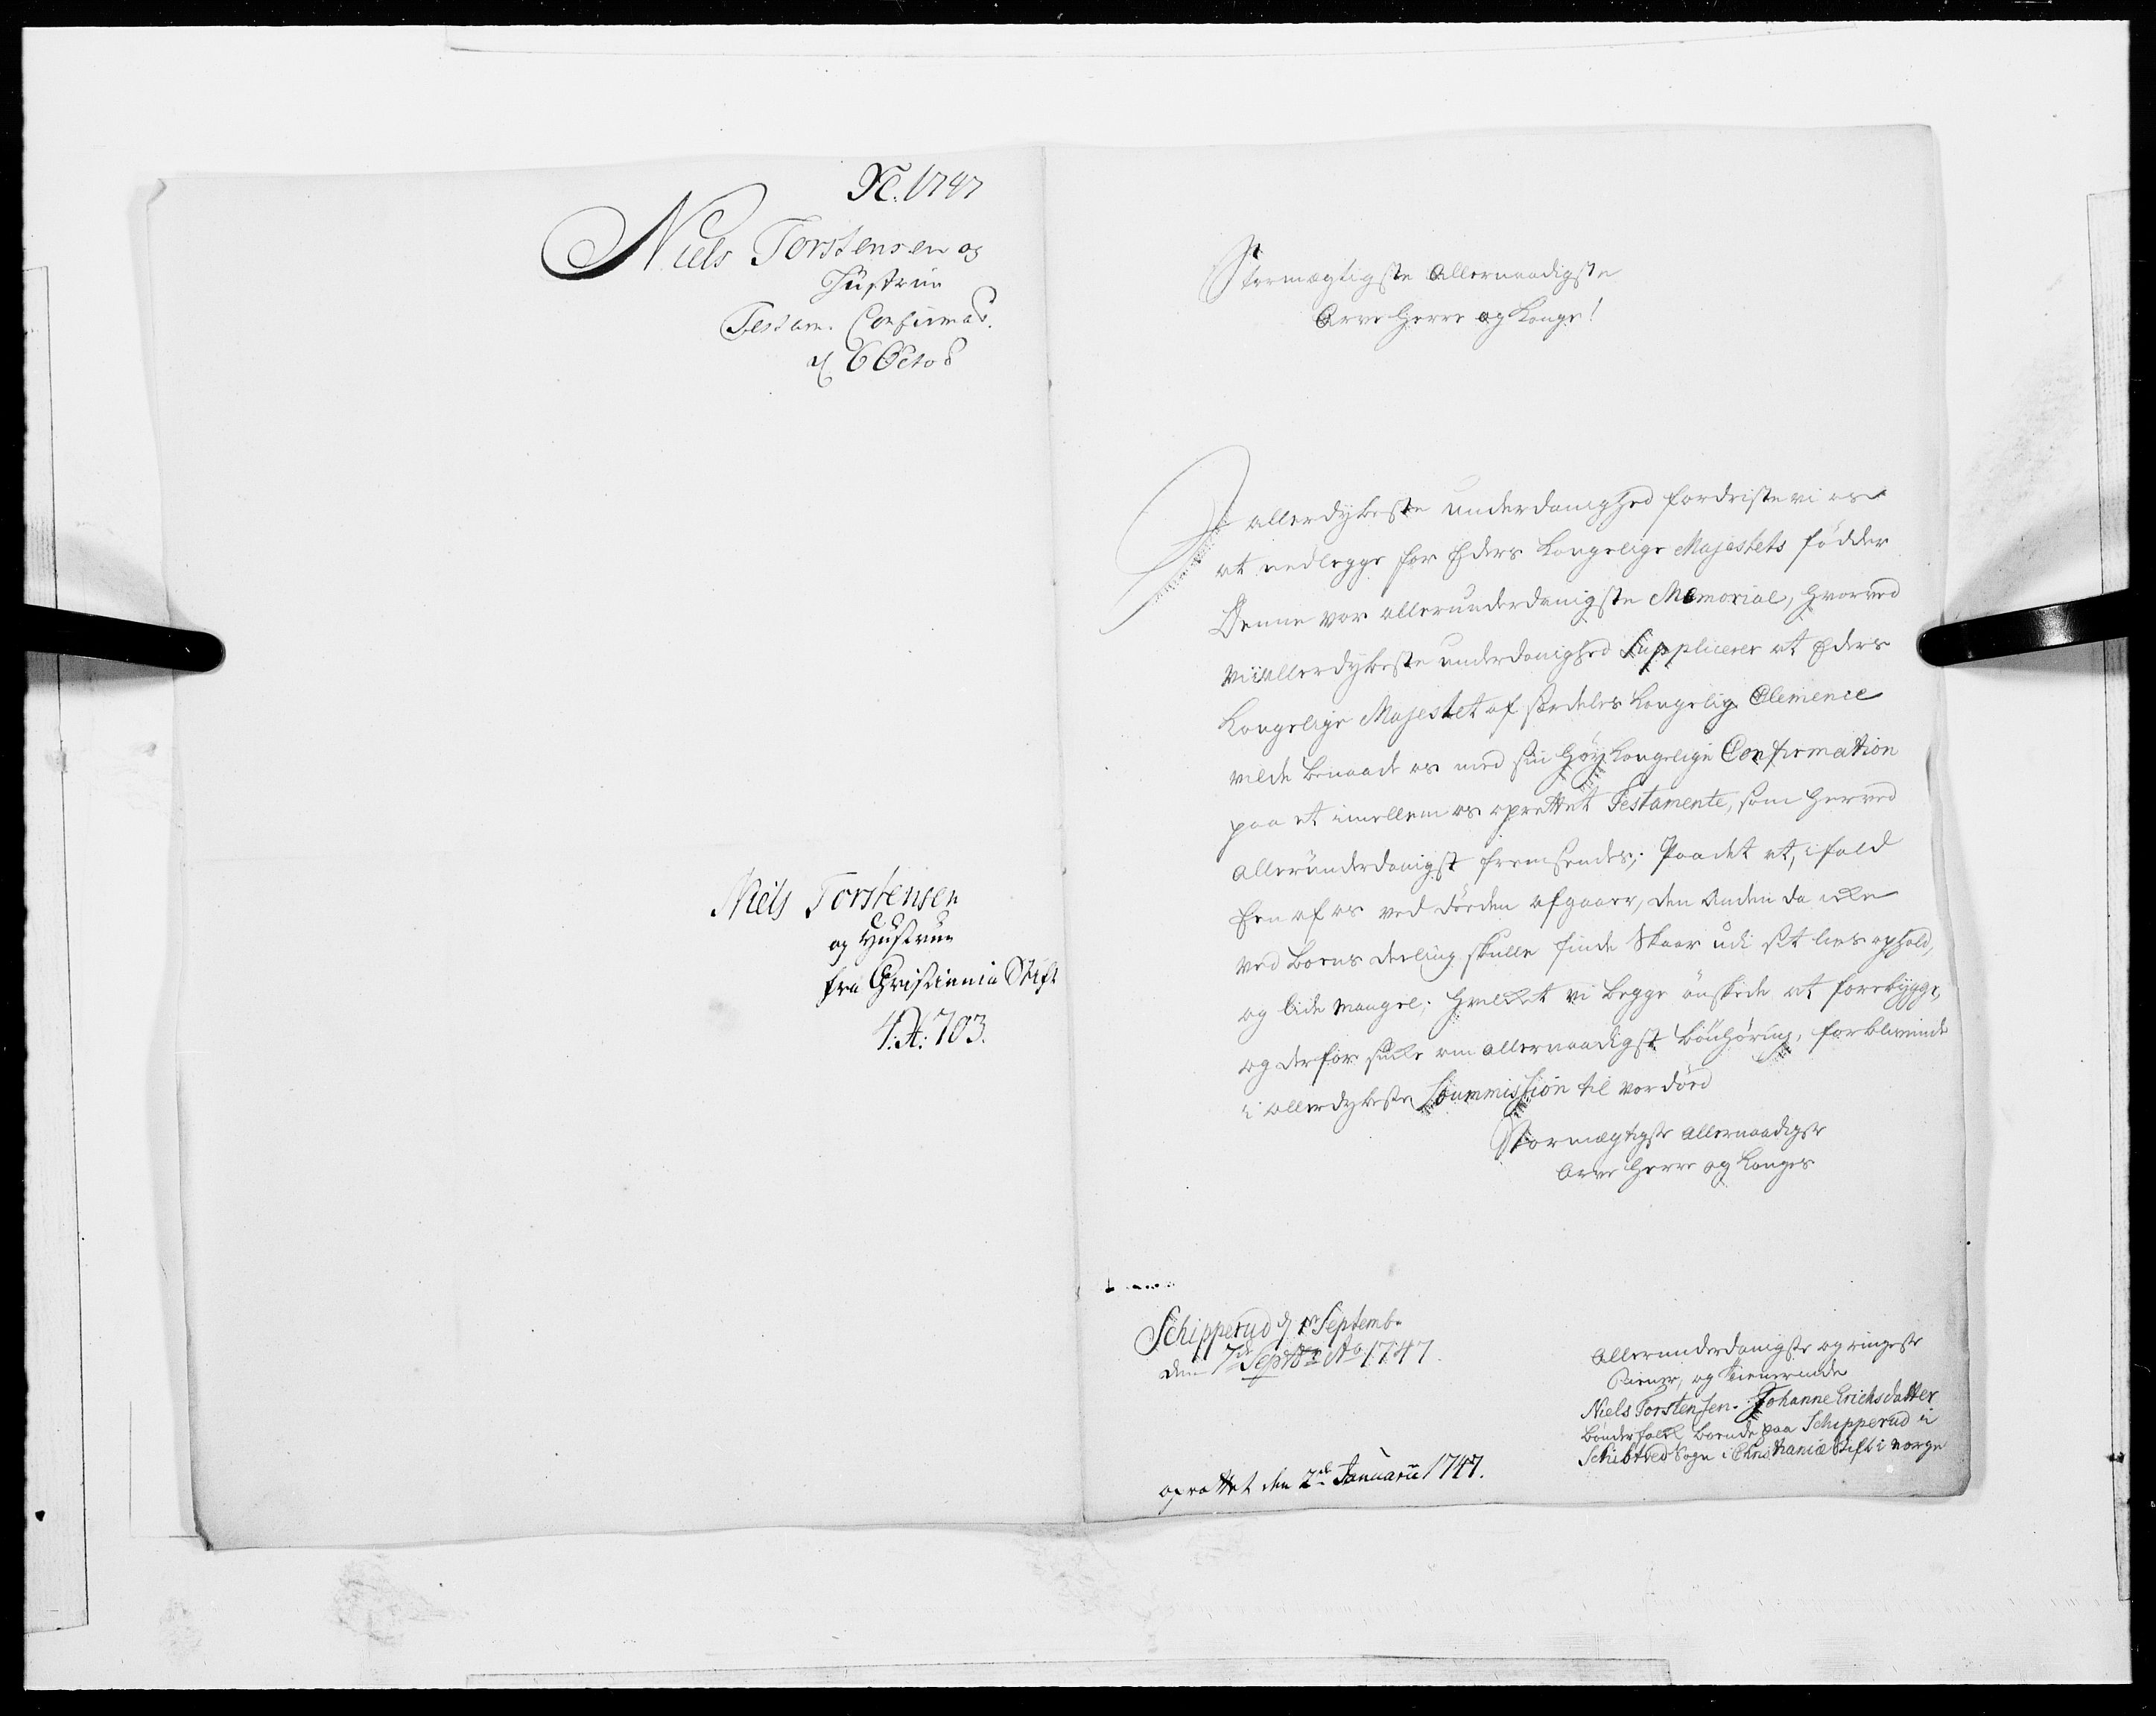 N. 1747
Niels Torstensen og
Hustrue
Testam. Confirmat.
d. 6 Octob
Niels Torstensen
og Hustrue
fra Christiania Stift
1. A: 703.
Stormægtigste Allernaadigste
Arve Herre og Konge!
I allerdybeste underdanighed fordriste vi os
at nedlegge for Eders Kongelige Majestets fødder
Denne vor allerunderdanigste Memorial, hvorved
vi i allerdybeste underdanighed Supplicerer at Eders
Kongelige Majestet af særdeles Kongelig Clemence
vilde benaade os med sin Høy Kongelige Confirmation
paa et imellem os oprettet Testamente, som herved
allerunderdanigst fremsendes; Paa det at, ifald
Een af os ved døden afgaaer, den Anden da icke
ved boens deeling skulle finde Skaar udi sit lives ophold,
og lide mangel; hvilcket vi begge ønskede at forebygge,
og derfor sucke om allernaadigst bønhøring, forblivende
i allerdybeste Soummission til vor død
Stormægtigste Allernaadigste
Arve Herre og Konges
Schipperud d. 1 Septemb.
den 7de Septbr Ao 1747.
Allerunderdanigste og ringeste
Tiener, og Tienerinde
Niels Torstensen. Johanne Erichsdatter
Bønderfolck boende paa Schipperud i
Schibtved Sogn i Christianiæ Stift i Norge
oprettet den 2de Januarii 1747.